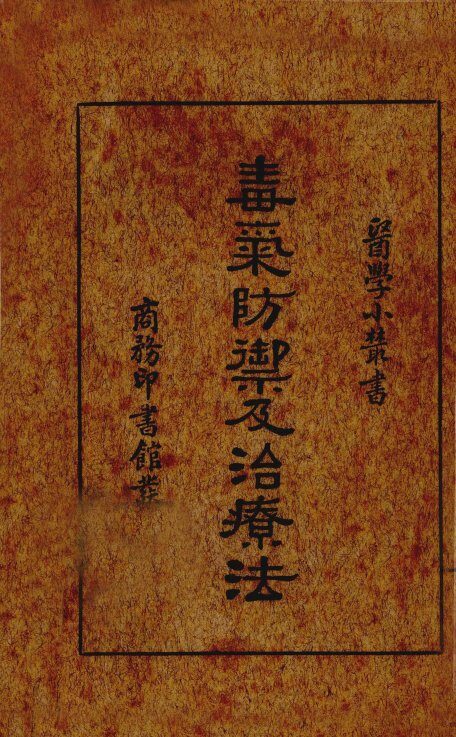 醫學小叢書
毒氣防禦及治療法
商務印書館發